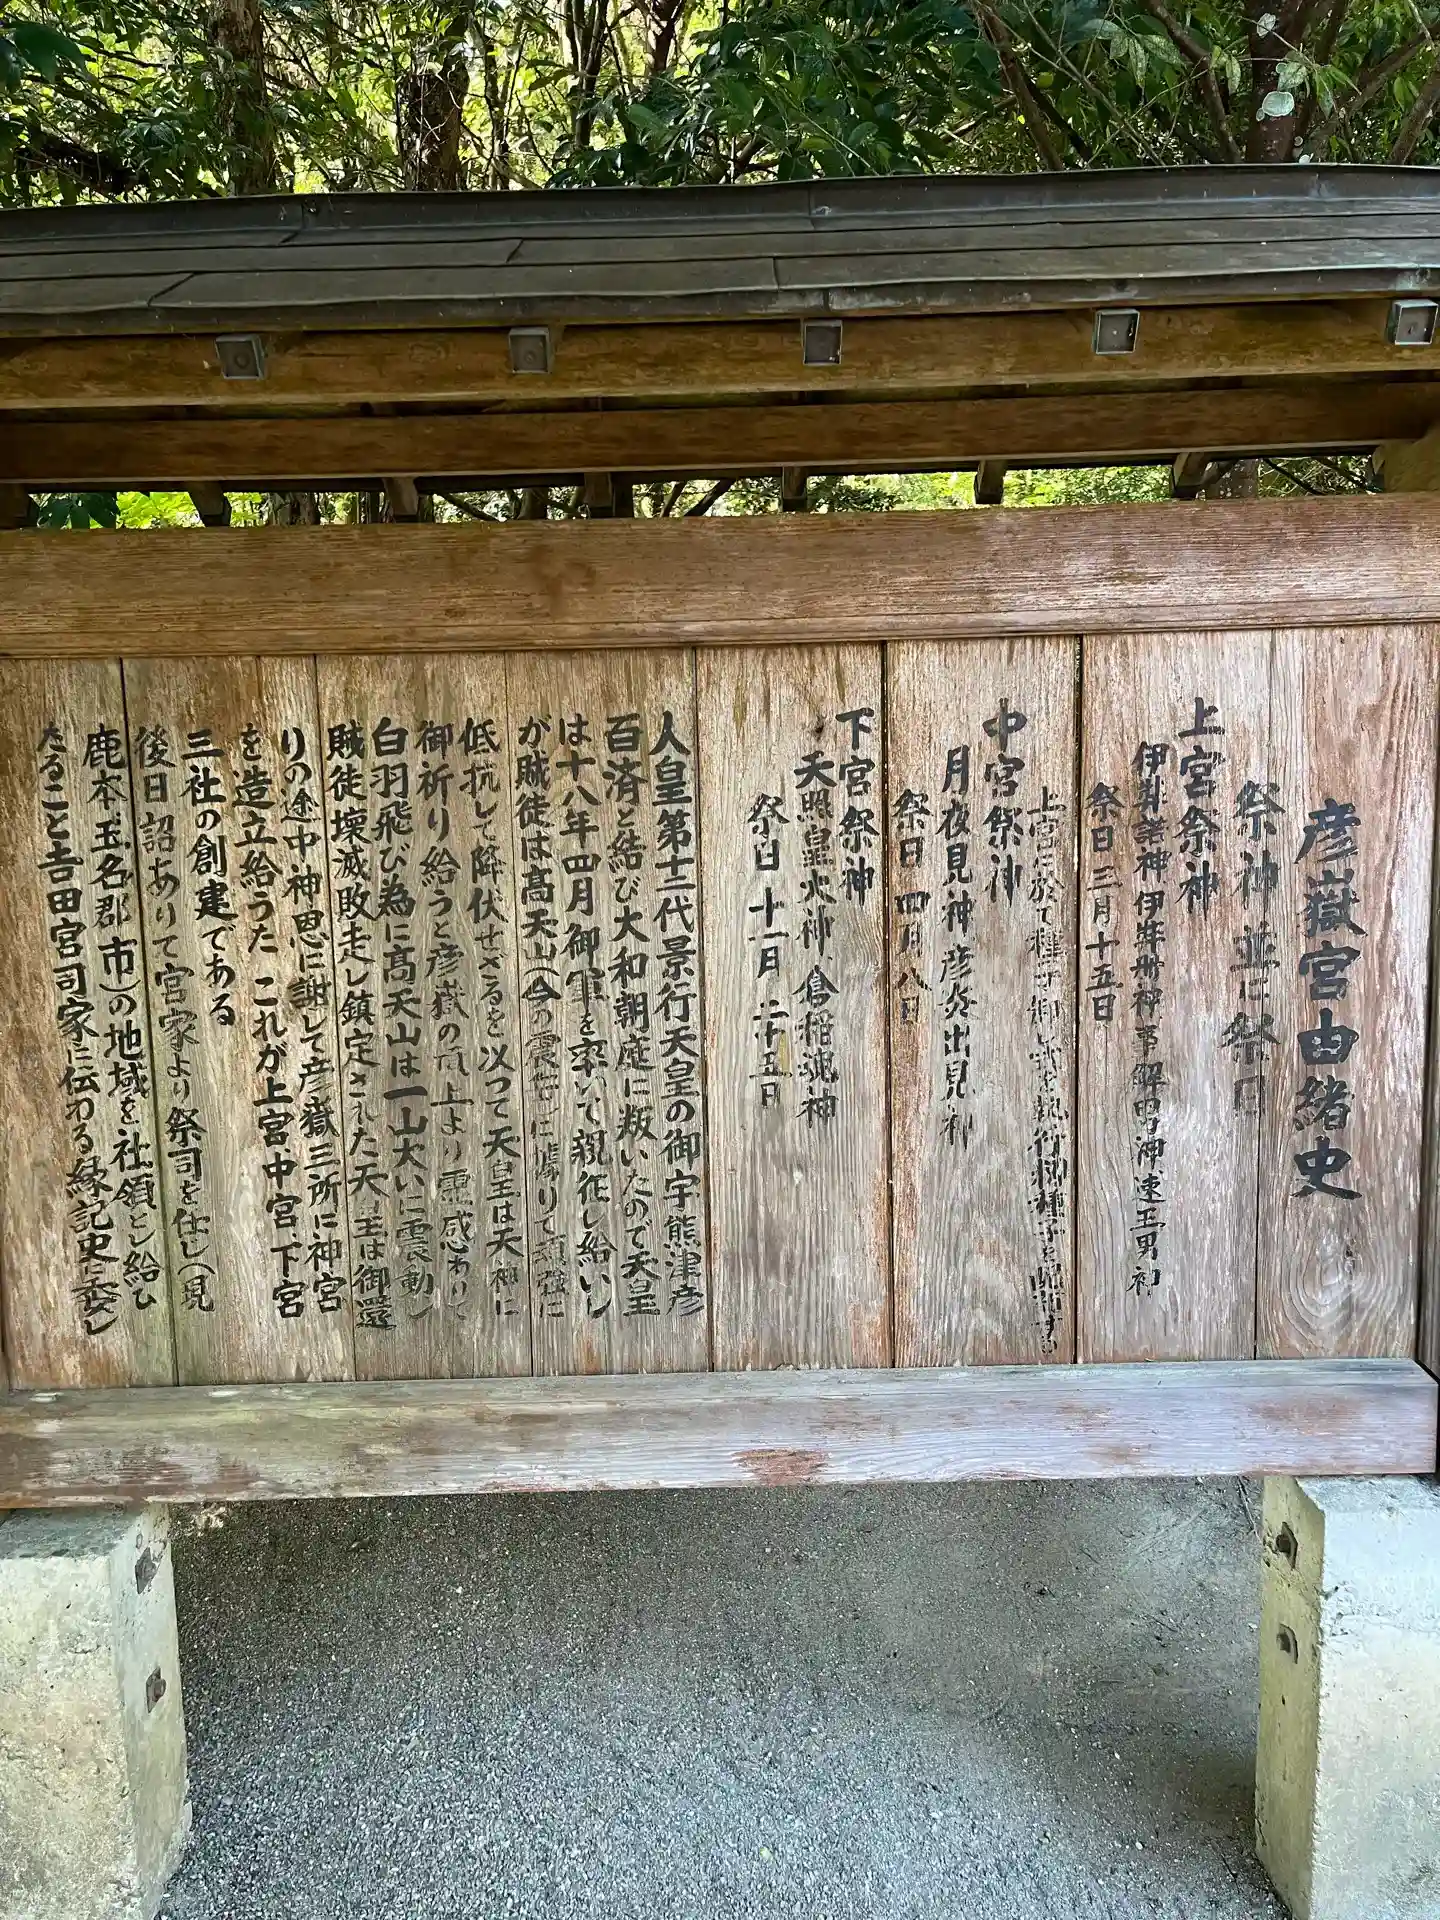 彦嶽宮由緒史
祭神並に祭日
上宮祭神
伊弉諾神 伊弉册神 事解男神 速玉男神
祭日 三月十五日
上宮に於て種子
中宮祭神
月夜見神 彦炎出見神
祭日 四月八日
下宮祭神
天照皇大神 倉稲魂神
祭日 十一月二十五日
人皇第十二代景行天皇の御宇熊津彦
百済と結び大和朝庭に叛いたので天皇
は十八年四月御軍を率いて親征し給いし
が賊徒は高天山(今の震岳)に據りて頑強に
低抗して降伏せざるを以つて天皇は天神に
御祈り給うと彦嶽の頂上より霊感ありて
白羽飛び為に高天山は一山大いに震動し
賊徒壊滅敗走し鎮定された天皇は御還
りの途中神恩に謝して彦嶽三所に神宮
を造立給うた これが上宮、中宮、下宮
三社の創建である
後日詔ありて宮家より祭司を任し(現
鹿本玉名郡市)の地域を社領とし給ひ
たること吉田宮司家に伝わる縁記史に委し